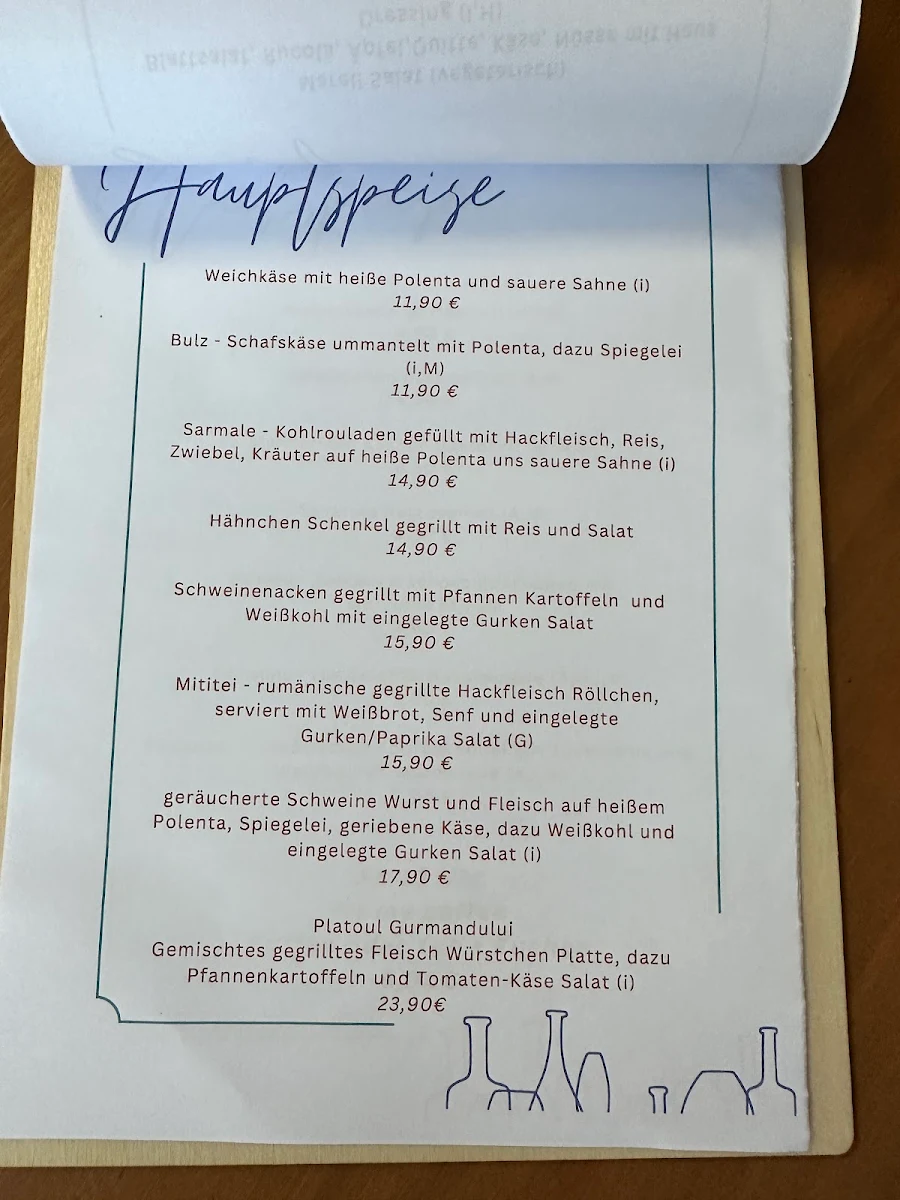 Dressing (i,H)
Blattsalat, Rucola, Apfel,Quitte, Käse, Nüsse mit Haus
Salat (vegetarisch)
Hauptspeise
Weichkäse mit heiße Polenta und sauere Sahne (i)
11,90 €
Bulz - Schafskäse ummantelt mit Polenta, dazu Spiegelei
(i,M)
11,90 €
Sarmale - Kohlrouladen gefüllt mit Hackfleisch, Reis,
Zwiebel, Kräuter auf heiße Polenta uns sauere Sahne (i)
14,90 €
Hähnchen Schenkel gegrillt mit Reis und Salat
14,90 €
Schweinenacken gegrillt mit Pfannen Kartoffeln und
Weißkohl mit eingelegte Gurken Salat
15,90 €
Mititei - rumänische gegrillte Hackfleisch Röllchen,
serviert mit Weißbrot, Senf und eingelegte
Gurken/Paprika Salat (G)
15,90 €
geräucherte Schweine Wurst und Fleisch auf heißem
Polenta, Spiegelei, geriebene Käse, dazu Weißkohl und
eingelegte Gurken Salat (i)
17,90 €
Platoul Gurmandului
Gemischtes gegrilltes Fleisch Würstchen Platte, dazu
Pfannenkartoffeln und Tomaten-Käse Salat (i)
23,90€